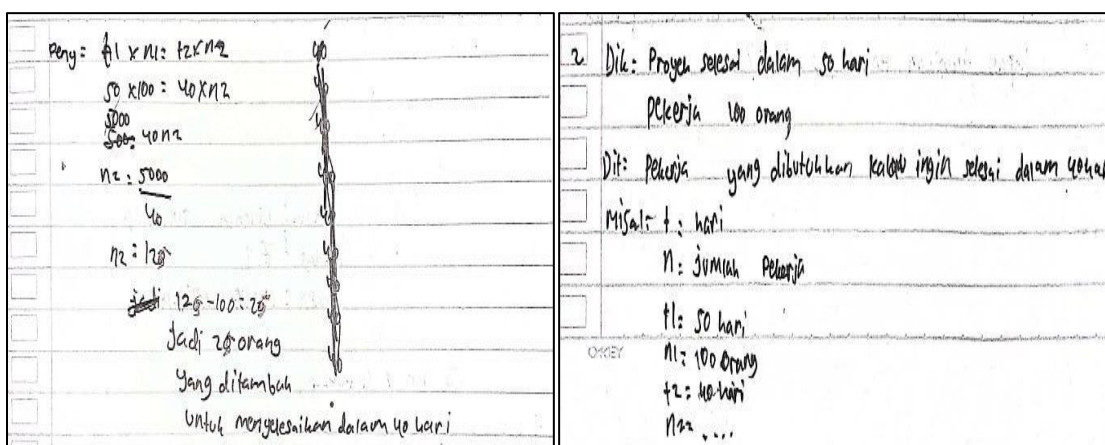 Peny = t1 x n1 = t2 x n2
50 x 100 = 40 x n2
5000
40 n2
n2 = 5000
40
n2 = 125
125 - 100 = 25
Jadi 25 orang
yang ditambah
untuk menyelesaikan dalam 40 hari
2 Dik: Proyek selesai dalam 50 hari
pekerja 100 orang
Dit: Pekerja yang dibutuhkan kalau ingin selesai dalam 40 har
Misal = t = hari
n = jumlah pekerja
t1 = 50 hari
n1 = 100 orang
t2 = 40 hari
n2 = ....